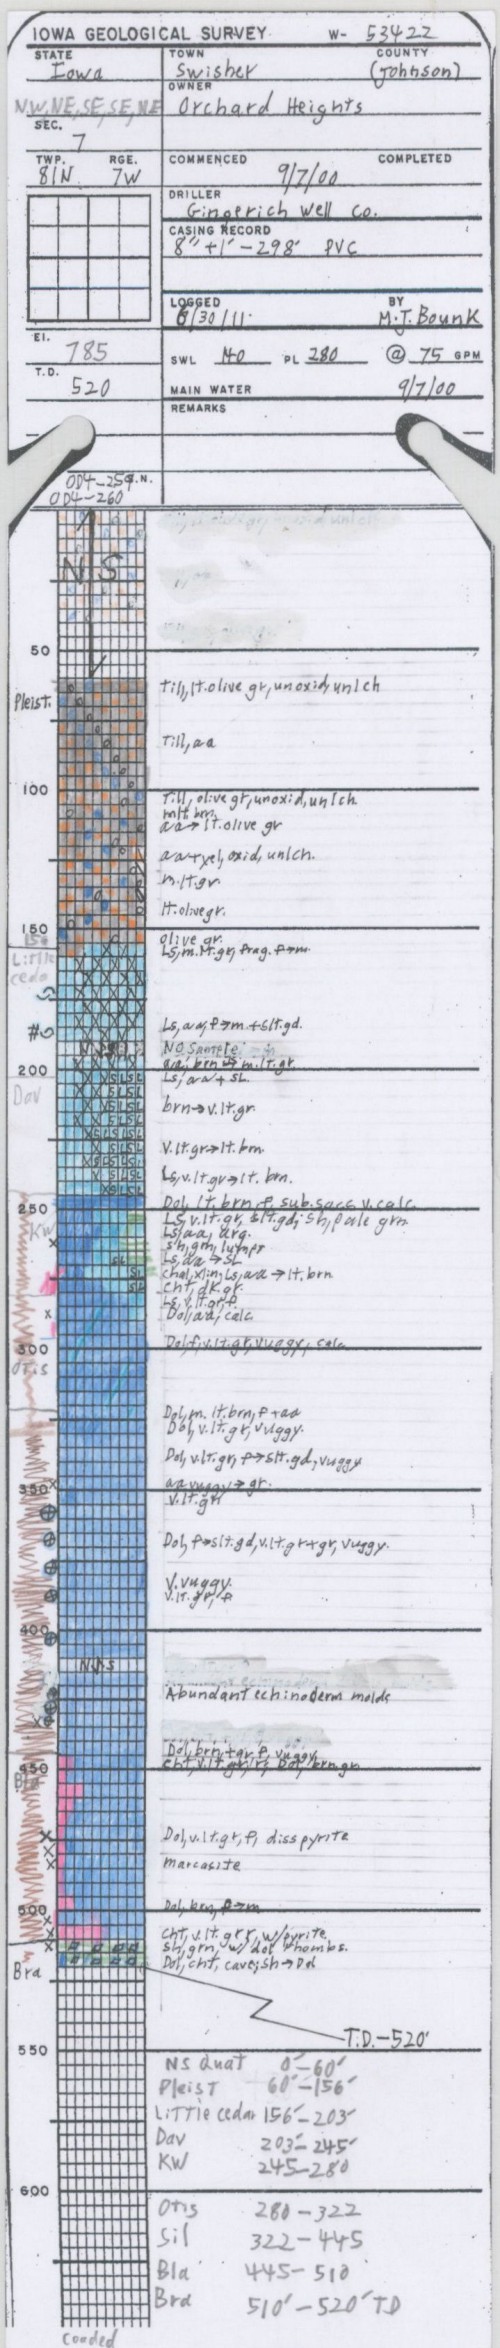 IOWA GEOLOGICAL SURVEY W- 53422
STATE TOWN COUNTY
Iowa Swisher (Johnson)
OWNER
NW,NE,SE,SE,NE Orchard Heights
SEC.
7
TWP. RGE. COMMENCED COMPLETED
81N 7W 9/7/00
DRILLER
Gingerich Well Co.
CASING RECORD
8" +1' - 298' PVC
LOGGED BY
6/30/11 M.J. Bounk
El. 785 SWL 140 PL 280 @ 75 GPM
T.D. 520 MAIN WATER 9/7/00
REMARKS
OD4-259 S.N.
OD4-260
NS
50
Till, lt. olive gr, unoxid, unlch
Pleist.
Till, aa
100
Till, olive gr, unoxid, unlch.
m.lt. brn.
aa→lt. olive gr
aa+yel, oxid, unlch.
m.lt.gr.
lt. olive gr.
150
olive gr.
156
Ls, m.lt.gr, frag. f→m.
Little
Ceda
Ls, aa, f→m.+slt.gd.
No Sample
aa, brn → m.lt.gr.
200
Ls, aa + SL
Dav
brn→v.lt.gr.
v.lt.gr→lt. brn.
Ls, v.lt.gr→lt. brn.
Dol, lt. brn, f, sub.sacc, v.calc.
250
Ls, v.lt.gr, slt.gd; sh, pale grn
KW
Ls, aa, arg.
sh, grn, lumps
Ls, aa → SL
chal, xlin; Ls, aa→lt. brn
cht, dk.gr.
Ls, v.lt.gr, f
Dol, aa, calc
300
Dol, f, v.lt.gr, vuggy, calc
Otis
Dol, m. lt. brn, f+aa
Dol, v.lt.gr, vuggy.
Dol, v.lt.gr, f→slt.gd, vuggy
350
aa vuggy → gr.
v.lt.gr
Dol, f→slt.gd, v.lt.gr+gr, vuggy.
v.vuggy.
v.lt.gr, f
400
NS
Abundant echinoderm molds
Dol, brn+gr, f, vuggy
450
Cht, v.lt.gr, r; Dol, brn gr
Bla
Dol, v.lt.gr, f, diss pyrite
marcasite
500
Dol, brn, f→m
Cht, v.lt.gr r, w/pyrite
sh, grn, w/ dol rhombs.
Bra
Dol, cht, cave; sh→Dol
T.D.-520'
550
NS Quat 0'-60'
Pleist 60'-156'
Little cedar 156'-203'
Dav 203'-245'
KW 245-280
600
Otis 280-322
Sil 322-445
Bla 445-510
Bra 510'-520' TD
Cooded